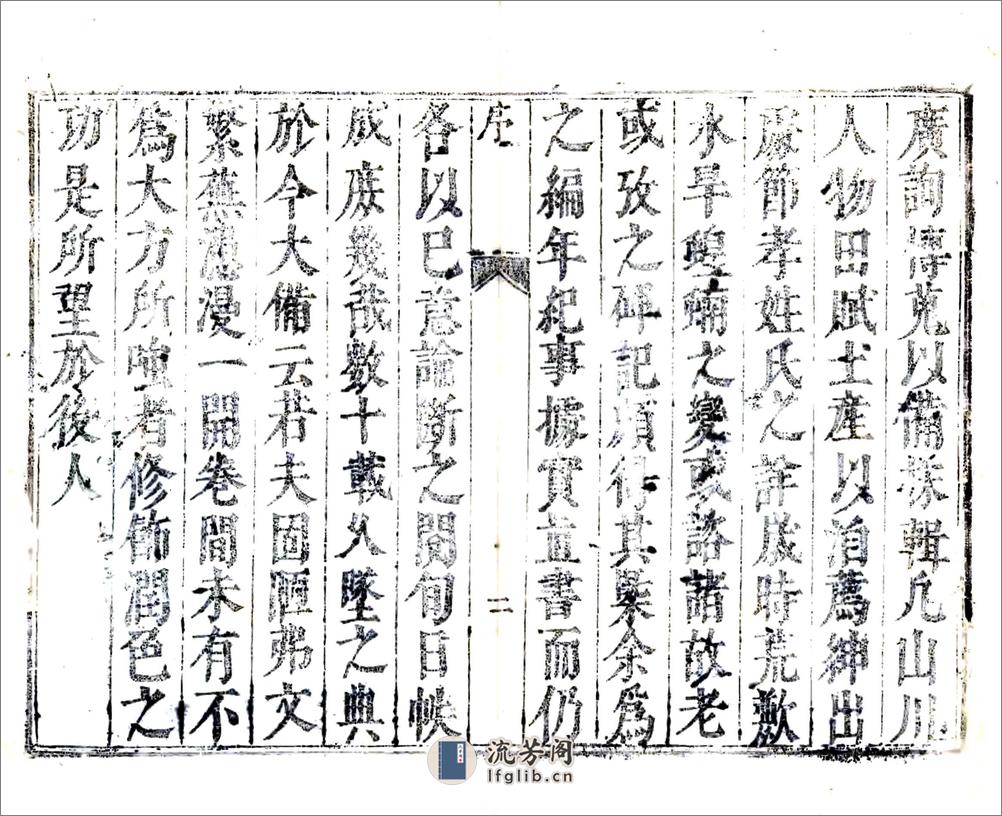 廣詢博克以備採輯凡山川
人物田賦土產以洎薦紳出
處節孝姓氏之詳歲時荒歉
水旱蝗蝻之變或諮諸故老
或攷之碑記頃得其槩余爲
之編年紀事據實直書而仍
序
二
各以巳意論斷之閱旬日帙
成庶幾哉數十載久墜之典
於今大備云若夫固陋弗文
繁蕪漫一開卷間未有不
爲大方所嗤者修飾潤色之
功是所望於後人
流芳阁
lfglib.cn